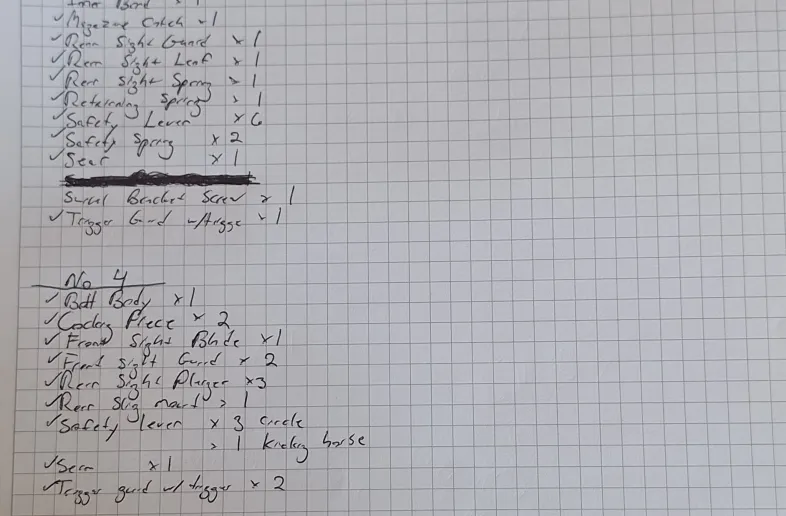 Inner Band × 1
✓ Magazine Catch × 1
✓ Rear Sight Guard × 1
✓ Rear Sight Leaf × 1
✓ Rear Sight Spring × 1
✓ Returning Spring × 1
✓ Safety Lever × 6
✓ Safety Spring × 2
✓ Sear × 1
Swivel Bracket Screw × 1
✓ Trigger Guard w/trigger × 1
No 4
✓ Bolt Body × 1
✓ Cocking Piece × 2
✓ Front Sight Blade × 1
✓ Front Sight Guard × 2
✓ Rear Sight Plunger × 3
✓ Rear Sling mount × 1
✓ Safety lever × 3 circle
× 1 Kicking horse
✓ Sear × 1
✓ Trigger guard w/ trigger × 2